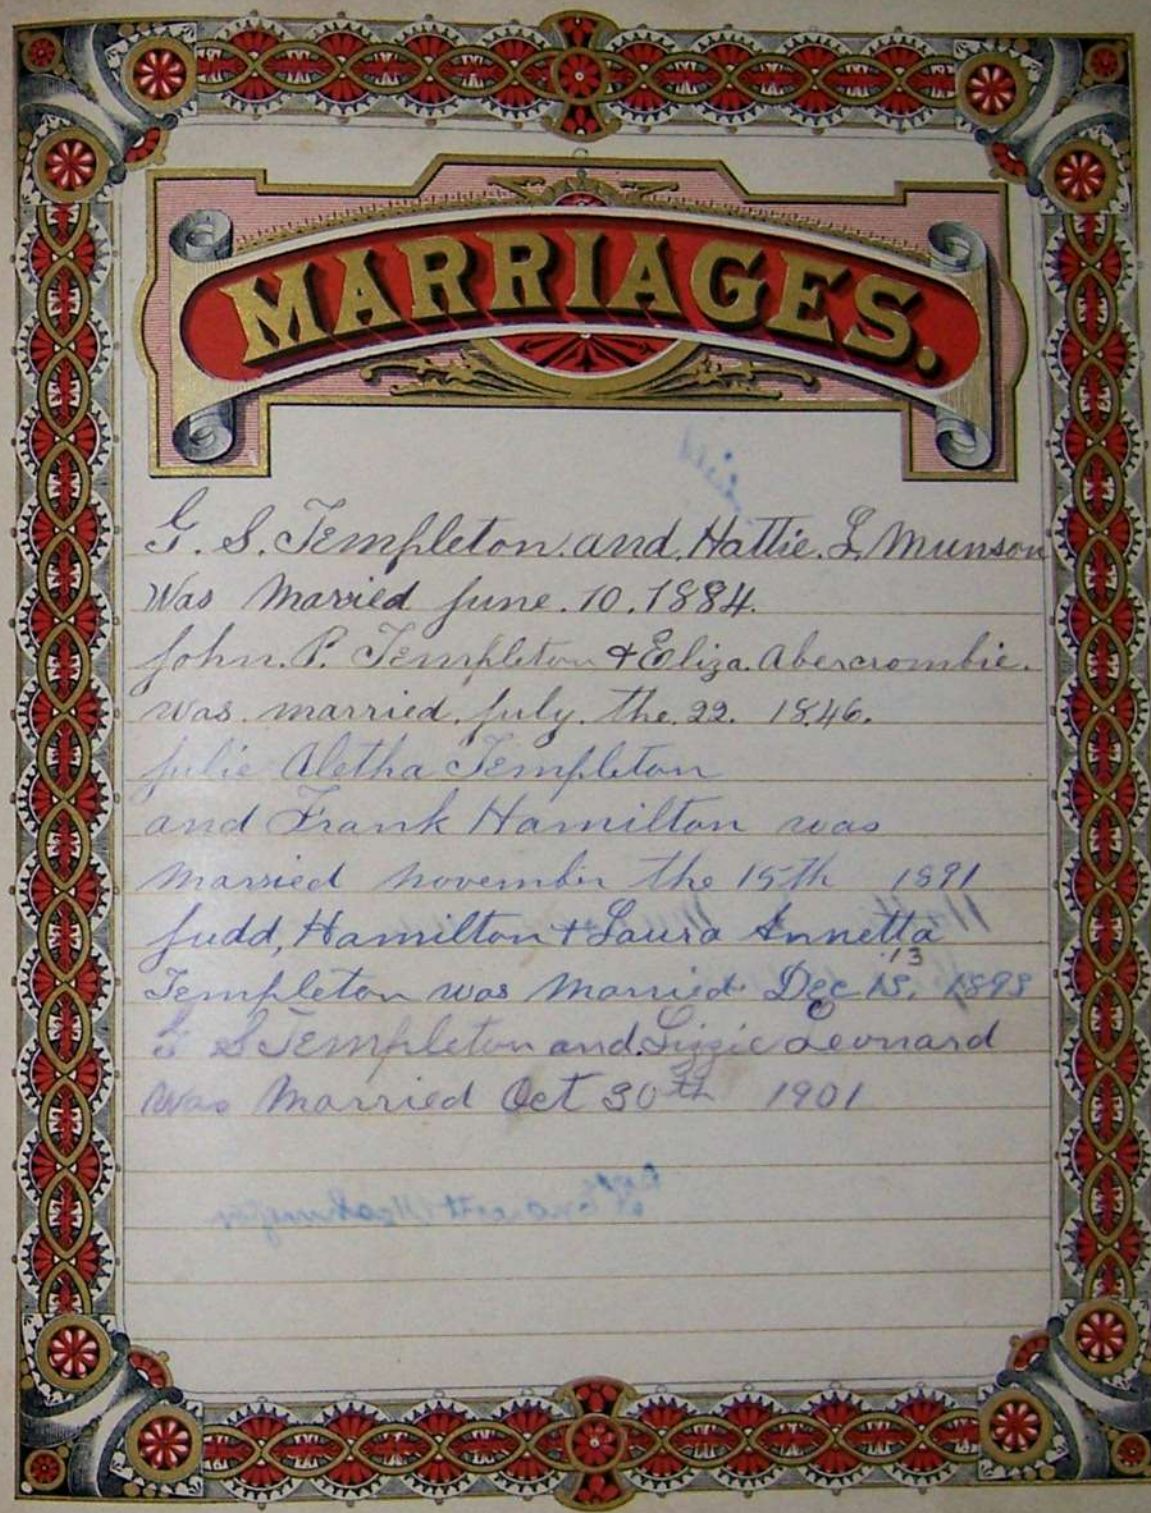 MARRIAGES.
G. S. Templeton. and. Hattie. L. Munson
Was Married June. 10. 1884.
John. P. Templeton & Eliza. Abercrombie.
was. married. July. the. 22. 1846.
Julie Aletha Templeton
and Frank Hamilton was
married november the 15th 1891
Judd, Hamilton + Laura Annetta
13
Templeton was Married Dec 13, 1893
G S Templeton and. Lizzie Leonard
was Married Oct 30th 1901